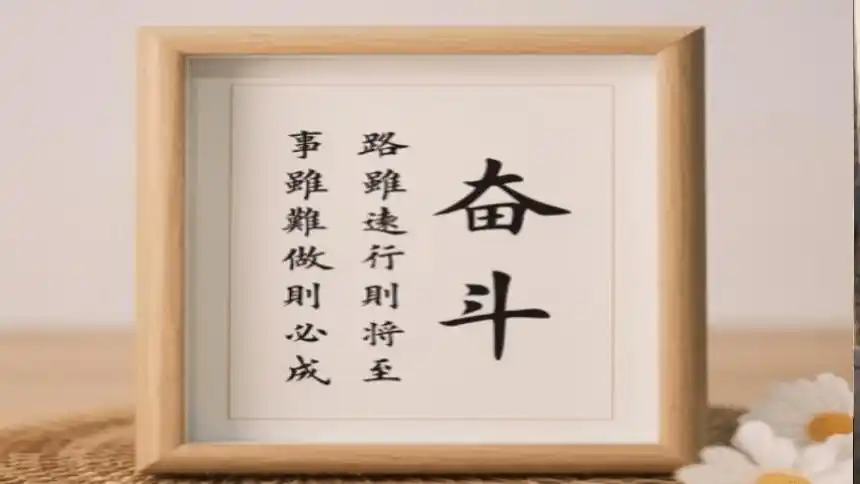 奋斗
路雖遠行則将至
事雖難做則必成